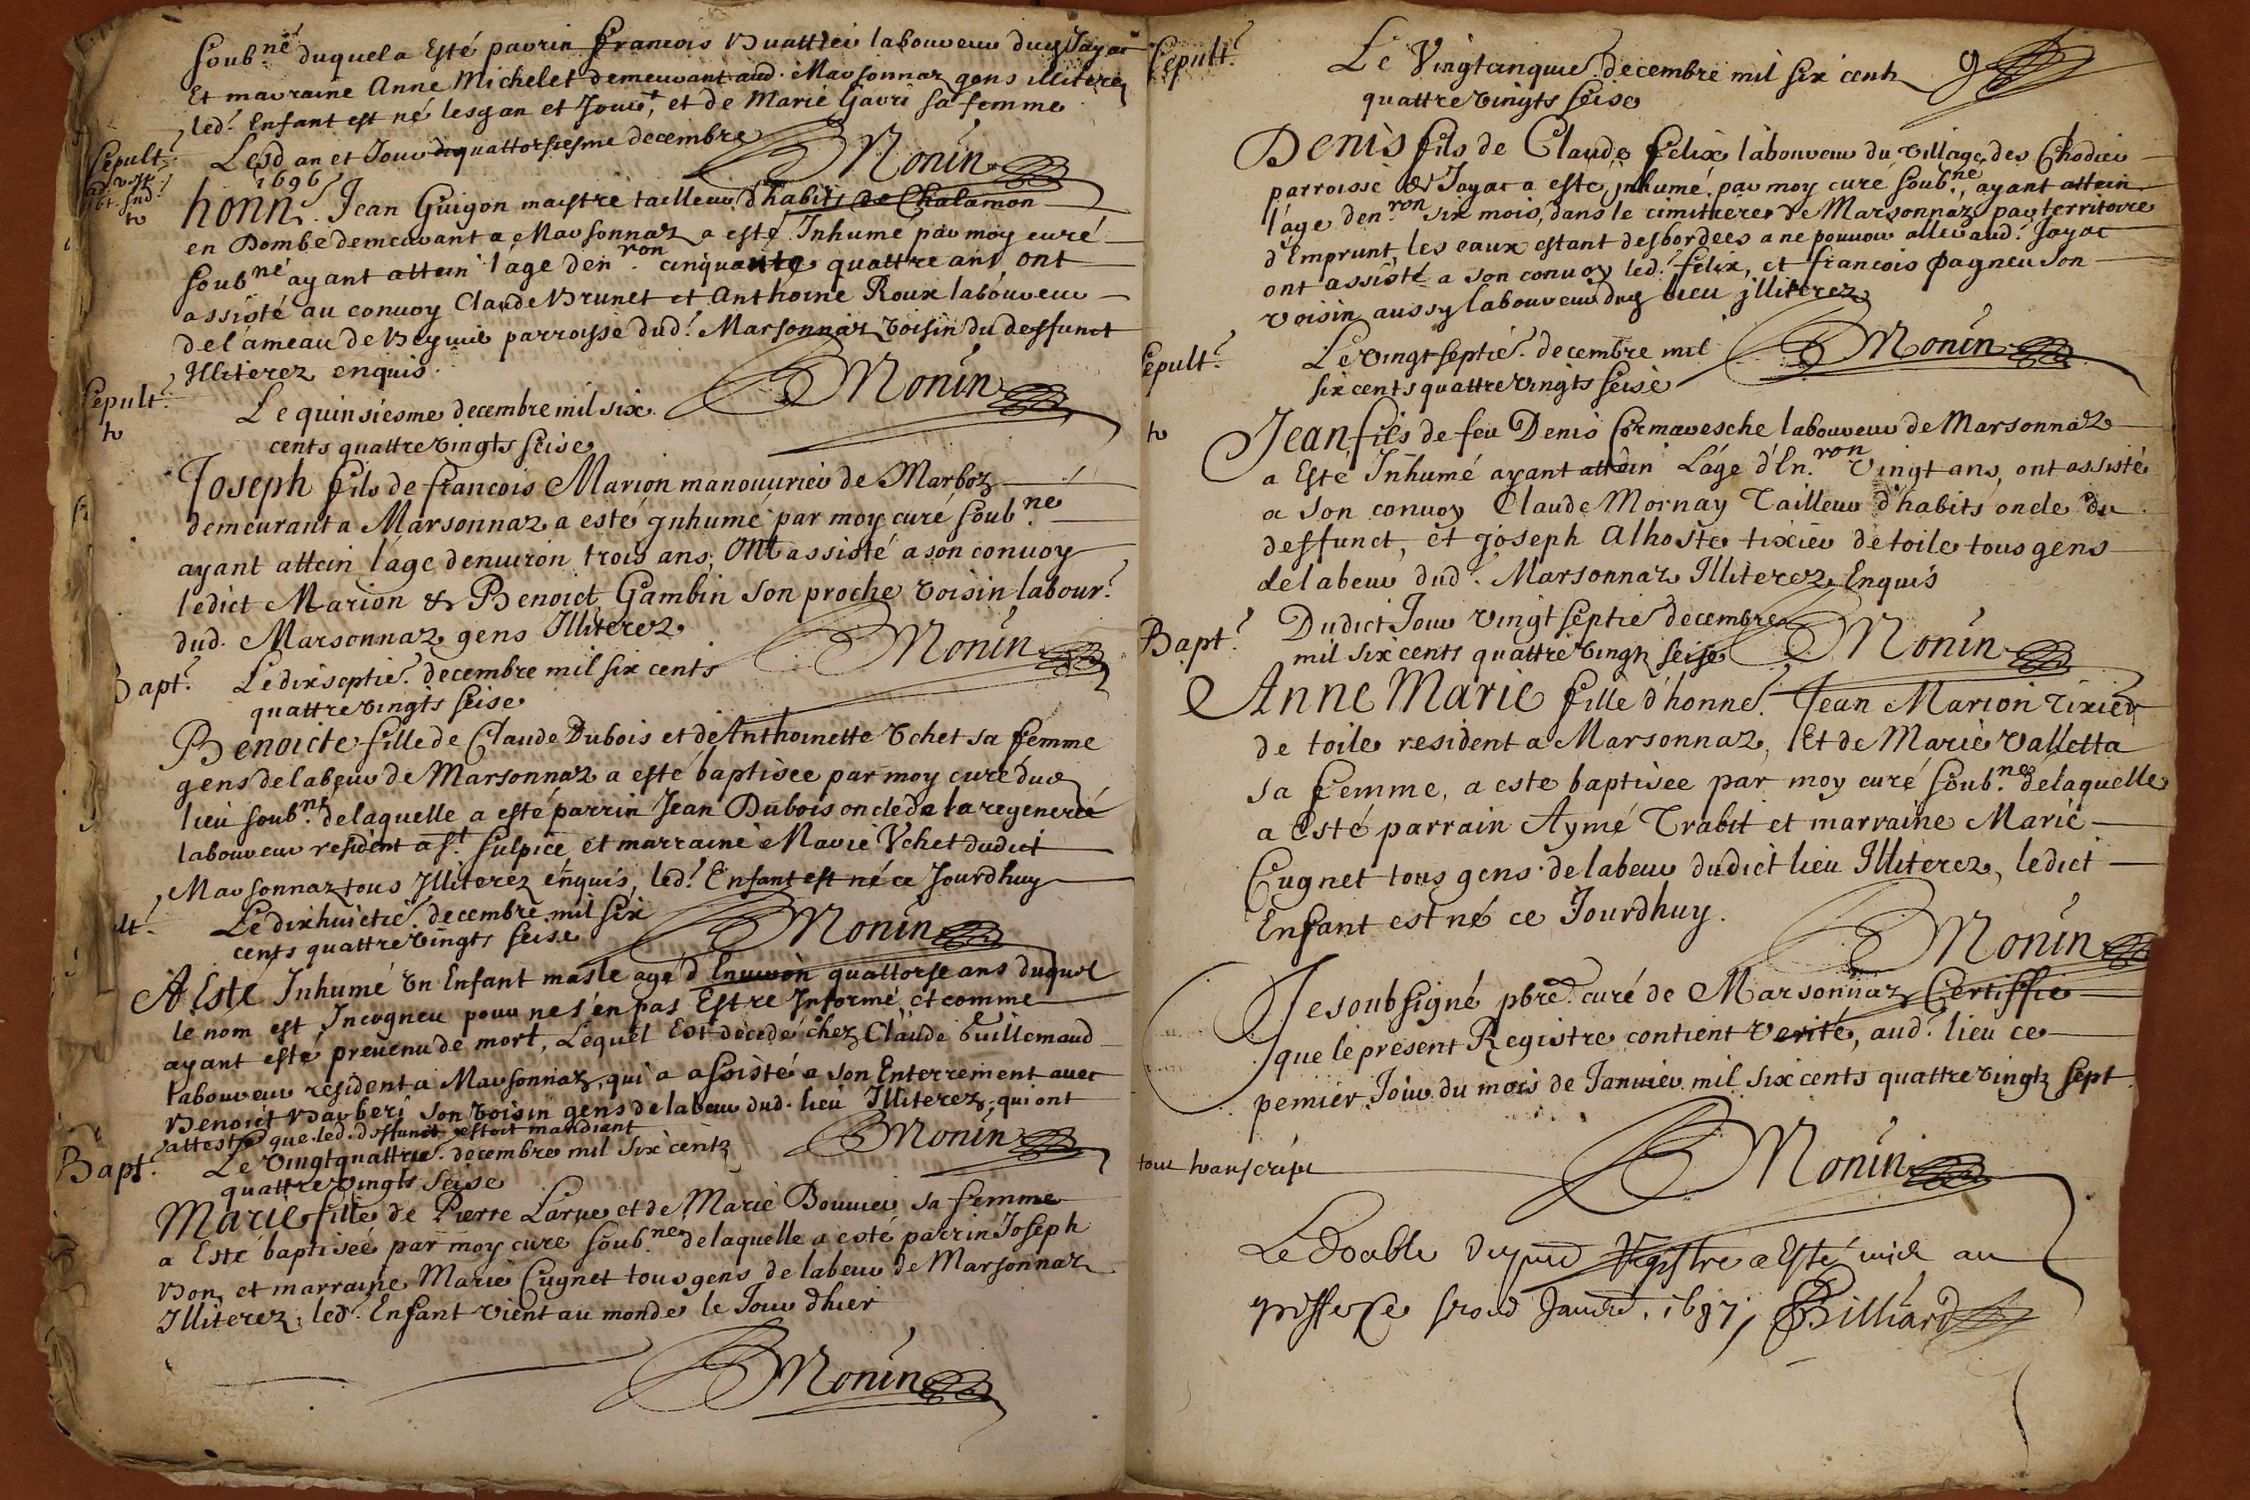 soub.né duquel a Esté parrin francois Buattier laboureur dud Jayac
Et marraine Anne Michelet demeurant aud. Marsonnaz gens illiterez
led.t Enfant est né lesd an et Jour, et de Marie Gavri sa femme
Monin
Sepult.re
Lesd an et Jour quattorsiesme decembre
1696
honn. Jean Guigon maistre tailleur d'habits de Chalamon
en Dombe demeurant a Marsonnaz a esté Inhumé par moy curé
soub.né ayant attein l'age d'en.ron cinquante quattre ans, ont
assisté au convoy Claude Brunet et Anthoine Roux laboureur
de l'ameau de parroisse dud.t Marsonnaz voisin du deffunct
Illiterez enquis.
Monin
Sepult.re
Le quinsiesme decembre mil six
cents quattre vingts seise
Joseph fils de francois Marion manouvrier de Marboz
demeurant a Marsonnaz a esté Jnhumé par moy curé soub.né
ayant attein l'age d'environ trois ans, Ont assisté a son convoy
ledict Marion & Benoict Gambin son proche voisin labour.r
dud. Marsonnaz gens Illiterez
Monin
Bapt.e
Le dix septie. decembre mil six cents
quattre vingts seise
Benoicte fille de Claude Dubois et de Anthoinette Vchet sa femme
gens de labeur de Marsonnaz a esté baptisée par moy curé dud
lieu soub.né de laquelle a esté parrin Jean Dubois oncle de la regenerée
laboureur resident a S.t Sulpice et marraine Marie Vchet dudict
Marsonnaz tous Jlliterez enquis, led.t Enfant est né ce Jourdhuy
Monin
lt.re
Le dix huictie. decembre mil six
cents quattre vingts seise
A Esté Inhumé vn Enfant masle agé d'Environ quattorse ans duquel
le nom est Incogneu pour ne s'en pas Estre Informé, et comme
ayant esté prevenu de mort, Lequel Est decedé chez Claude Guillemaud
laboureur resident a Marsonnaz, qui a assisté a son Enterrement avec
Benoict Barberi son voisin gens de labeur dud. lieu Illiterez, qui ont
attesté que led. deffunct estoit mandiant
Monin
Bapt.e
Le vingt quattrie. decembre mil six cents
quattre vingts seise
Marie fille de Pierre Larue et de Marie Bouvier sa femme
a Esté baptisée par moy curé soub.né de laquelle a esté parrin Joseph
Bon, et marraine Marie Cugnet tous gens de labeur de Marsonnaz
Illiterez, led.t Enfant vient au monde le Jour dhier
Monin
Sepult.re
Le Vingtcinquie. decembre mil six cents
quattre vingts seise
9
Denis fils de Claude felix laboureur du village des Chodier
parroisse de Jayac a esté inhumé par moy curé soub.né, ayant attein
l'age d'en.ron six mois, dans le cimitiere de Marsonnaz par territoire
d'Emprunt, les eaux estant desbordees a ne pouvoir aller aud.t Jayac
ont assisté a son convoy led.t felix, et francois pagneu son
voisin aussy laboureur dud lieu jlliterez
Monin
Sepult.re
Le vingt septie. decembre mil
six cents quattre vingts seise
Jean fils de feu Denis Cormaresche laboureur de Marsonnaz
a Esté Inhumé ayant attein L'age d'En.ron vingt ans, ont assisté
a son convoy Claude Mornay Tailleur d'habits oncle du
deffunct, et joseph Alhoste tixier de toile tous gens
de labeur dud.t Marsonnaz Illiterez, Enquis
Monin
Bapt.e
Dudict Jour vingt septie decembre
mil six cents quattre vingts seise
Anne Marie fille d'honne. Jean Marion Tixier
de toile resident a Marsonnaz, Et de Marie Valletta
sa femme, a este baptisée par moy curé soub.né de laquelle
a Esté parrain Aymé Trabit et marraine Marie
Cugnet tous gens de labeur dudict lieu Illiterez, ledict
Enfant est né ce Jourdhuy.
Monin
Je soubsigné pbre. curé de Marsonnaz Certiffie
que le present Registre contient verité, aud.t lieu ce
pemier Jour du mois de Janvier mil six cents quattre vingts sept
Monin
tout transcript
Le Double du Registre a Esté mis au
greffe ce Janvier 1697, Billiard